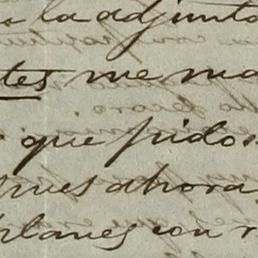 la adjunto
tes me ma
que pidos
pues ahora
planes con